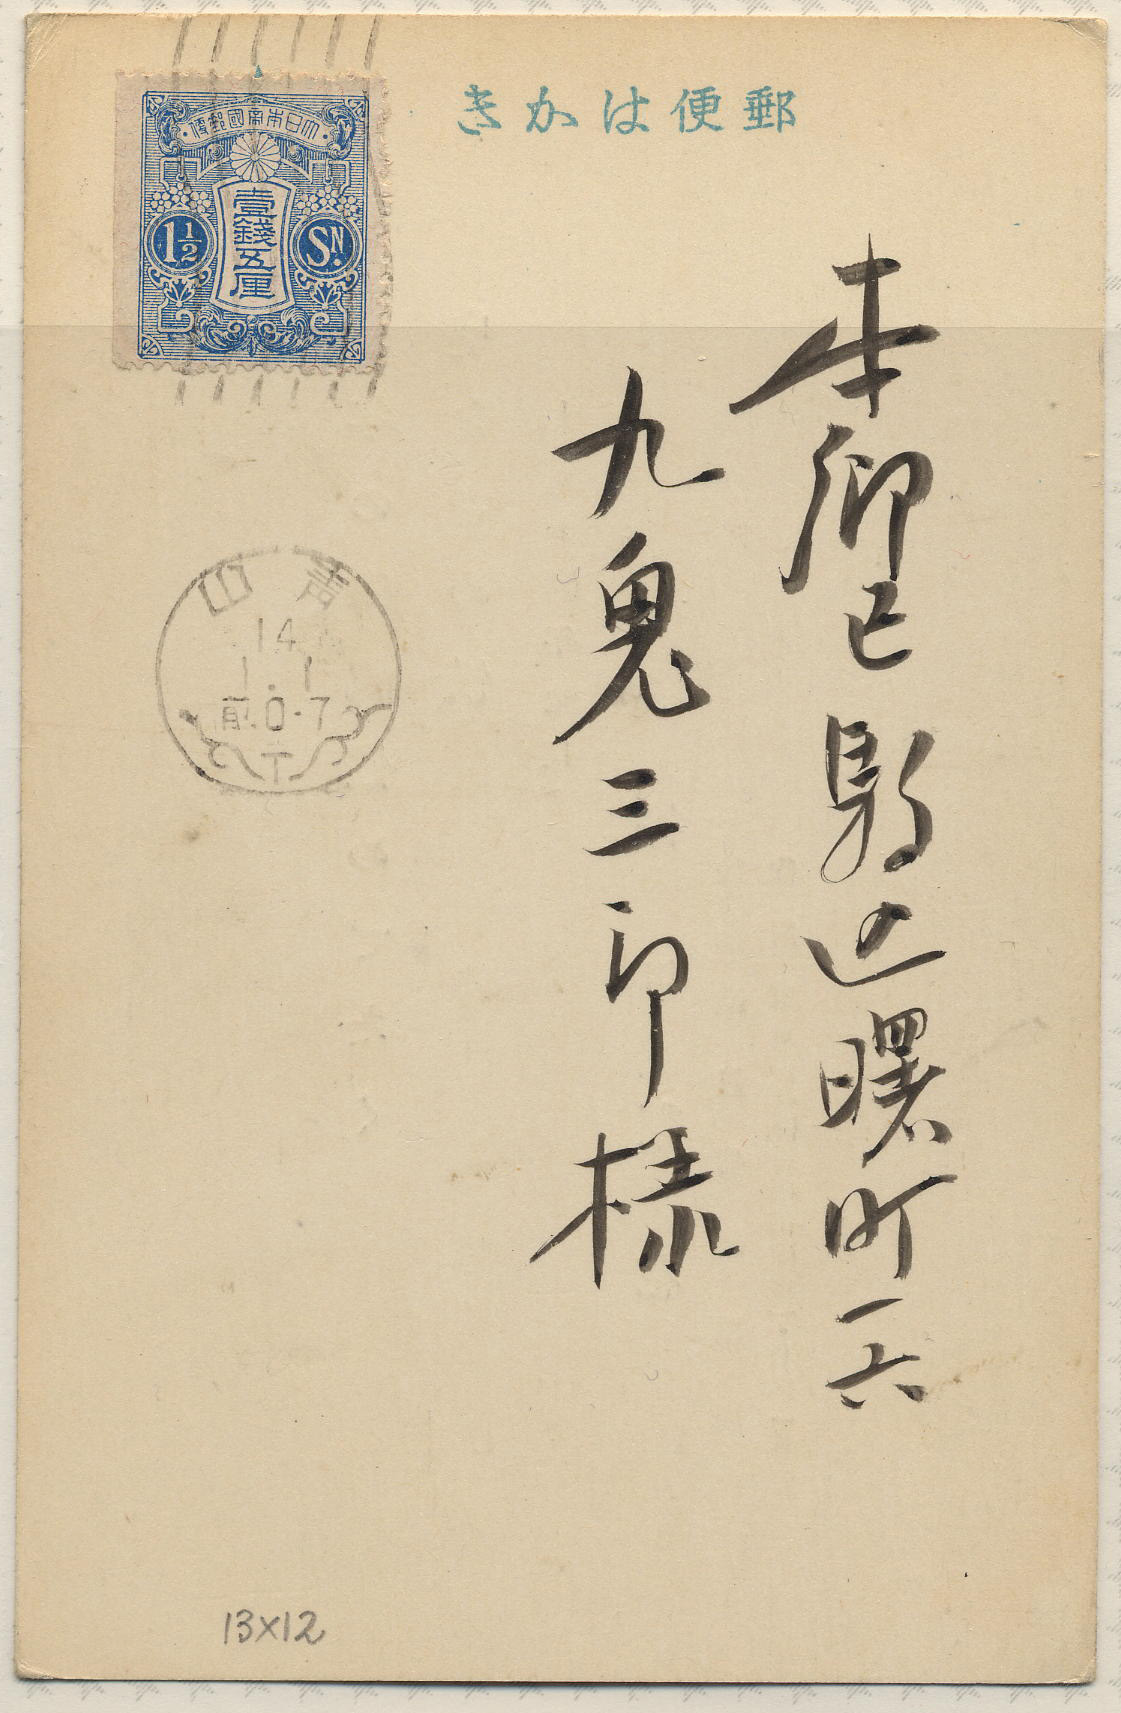 郵便はかき
大日本帝國郵便
壹錢五厘
1½ Sɴ.
青山
14
1.1
前0-7
本郷区駒込曙町一六
九鬼三郎様
13×12